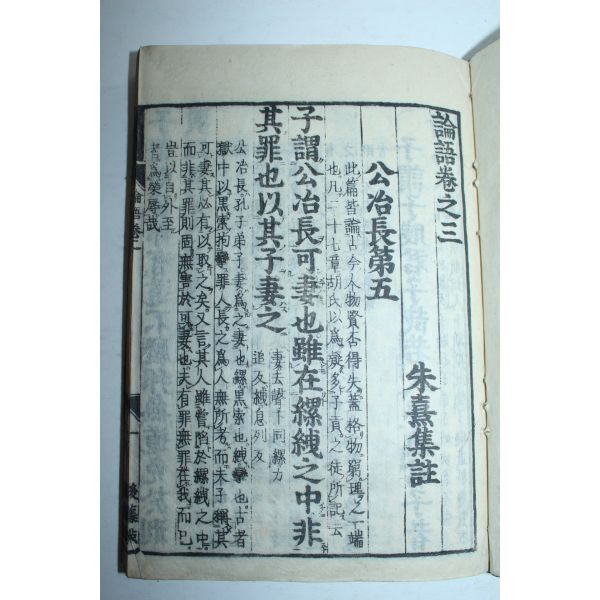 論語卷之三
朱熹集註
公冶長第五
此篇皆論古今人物賢否得失蓋格物窮理之一端
也凡二十七章胡氏以爲疑多子貢之徒所記云
子謂公冶長可妻也雖在縲絏之中非
其罪也以其子妻之
妻去聲下同縲力
追反絏息列反
公冶長孔子弟子妻爲之妻也縲黑索也絏攣也古者
獄中以黑索拘攣罪人長之爲人無所考而夫子稱其
可妻其必有以取之矣又言其人雖嘗陷於縲絏之中
而非其罪則固無害於可妻也夫有罪無罪在我而已
豈以自外至
者爲榮辱哉
論語卷三
一
後藤